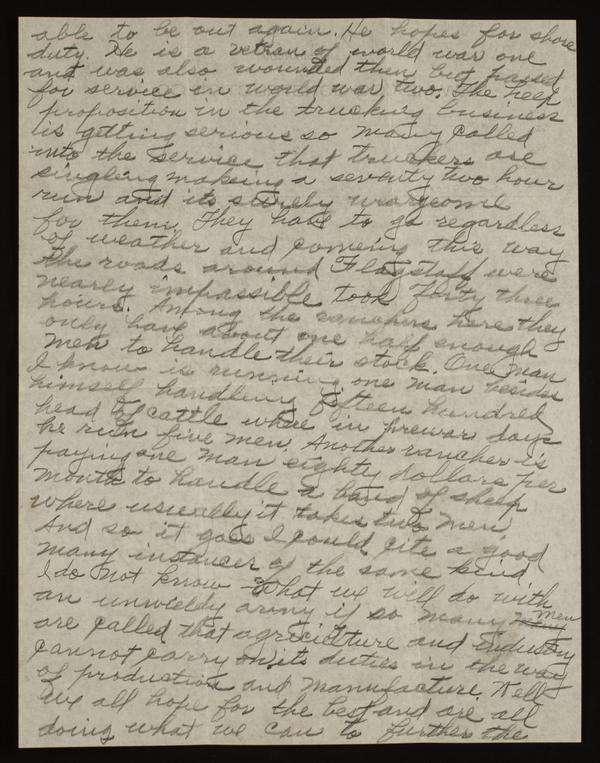 able to be out again. He hopes for shore
duty. He is a vetran of world war one
and was also wounded then but passed
for service in world war two. The help
proposition in the trucking business
is getting serious so many called
into the service that truckers are
singleing making a seventy two hour
run and its surely wearysome
for them. They have to go regardless
of weather and comeing this way
the roads around Flagstaff were
nearly impassible took forty three
hours. Among the ranchers here they
only have about one half enough
men to handle their stock. One man
I know is running one man besides
himself handling fifteen hundred
head of cattle where in prewar days
he run five men. Another rancher is
paying one man eighty dollars per
month to handle a band of sheep
where usually it takes two men.
And so it goes I could cite a good
many instances of the same kind.
I do not know what we will do with
an unwieldy army if so many men
are called that agriculture and industry
cannot carry on its duties in the way
of production and manufacture. Well
we all hope for the best and are all
doing what we can to further the